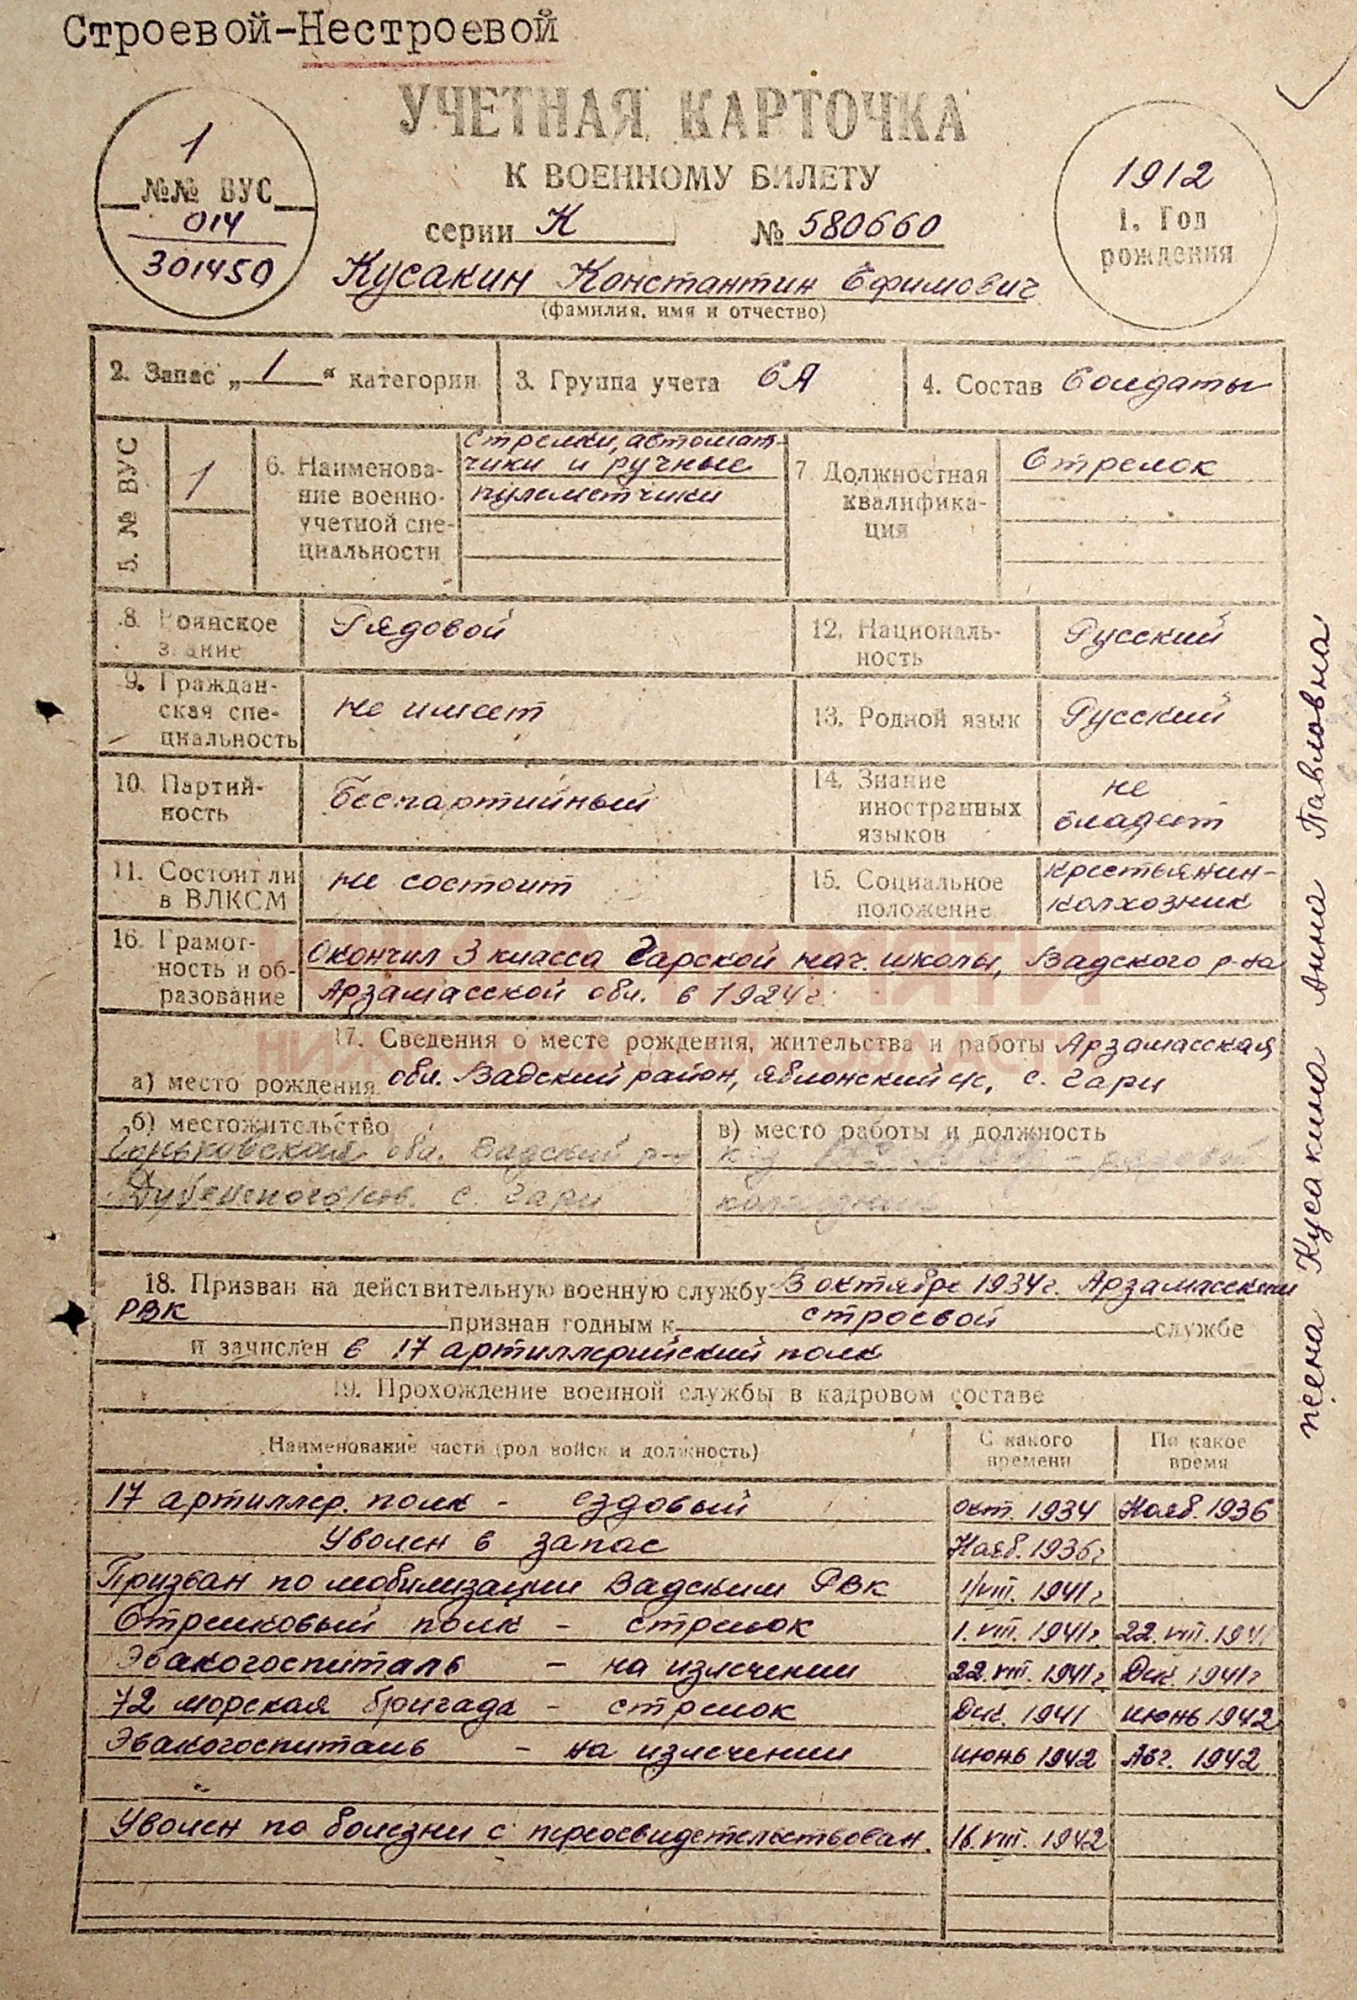 Строевой-Нестроевой
УЧЕТНАЯ КАРТОЧКА
К ВОЕННОМУ БИЛЕТУ
серии К № 580660
1
№№ ВУС
014
301450
1912
1. Год
рождения
Кусакин Константин Ефимович
(фамилия, имя и отчество)
2. Запас „1“ категории
3. Группа учета СА
4. Состав Солдаты
5. № ВУС
1
6. Наименова-
ние военно-
учетной спе-
циальности
Стрелки, автомат-
чики и ручные
пулеметчики
7 Должностная
квалифика-
ция
Стрелок
8. Воинское
звание
Рядовой
12. Националь-
ность
Русский
9. Граждан-
ская спе-
циальность
не имеет
13. Родной язык
Русский
10. Партий-
ность
беспартийный
14. Знание
иностранных
языков
не
владеет
11. Состоит ли
в ВЛКСМ
не состоит
15. Социальное
положение
крестьянин-
колхозник
16. Грамот-
ность и об-
разование
Окончил 3 класса Гарской нач. школы, Вадского р-на
Арзамасской обл. в 1924г.
КНИГА ПАМЯТИ
НИЖЕГОРОДСКОЙ ОБЛАСТИ
17. Сведения о месте рождения, жительства и работы Арзамасская
а) место рождения обл. Вадский район, Яблонский с/с, с. Гари
б) местожительство
Горьковская обл. Вадский р-н
Дубенского/сов. с. Гари
в) место работы и должность
к-з - рядовой
колхозник
18. Призван на действительную военную службу 3 октября 1934г. Арзамасским
РВК признан годным к строевой службе
и зачислен в 17 артиллерийский полк
19. Прохождение военной службы в кадровом составе
Наименование части (род войск и должность)
С какого
времени
По какое
время
17 артиллер. полк - ездовый окт. 1934 Нояб. 1936
Уволен в запас Нояб. 1936г
Призван по мобилизации Вадским РВк 1/VIII. 1941г
Стрелковый полк - стрелок 1. VIII. 1941г. 22. VIII. 1941
Эвакогоспиталь - на излечении 22. VIII. 1941г Дек. 1941г
72 морская бригада - стрелок Дек. 1941 июнь 1942
Эвакогоспиталь - на излечении июнь 1942 Авг. 1942
Уволен по болезни с переосвидетельствован. 16. VIII. 1942
жена Кусакина Анна Павловна